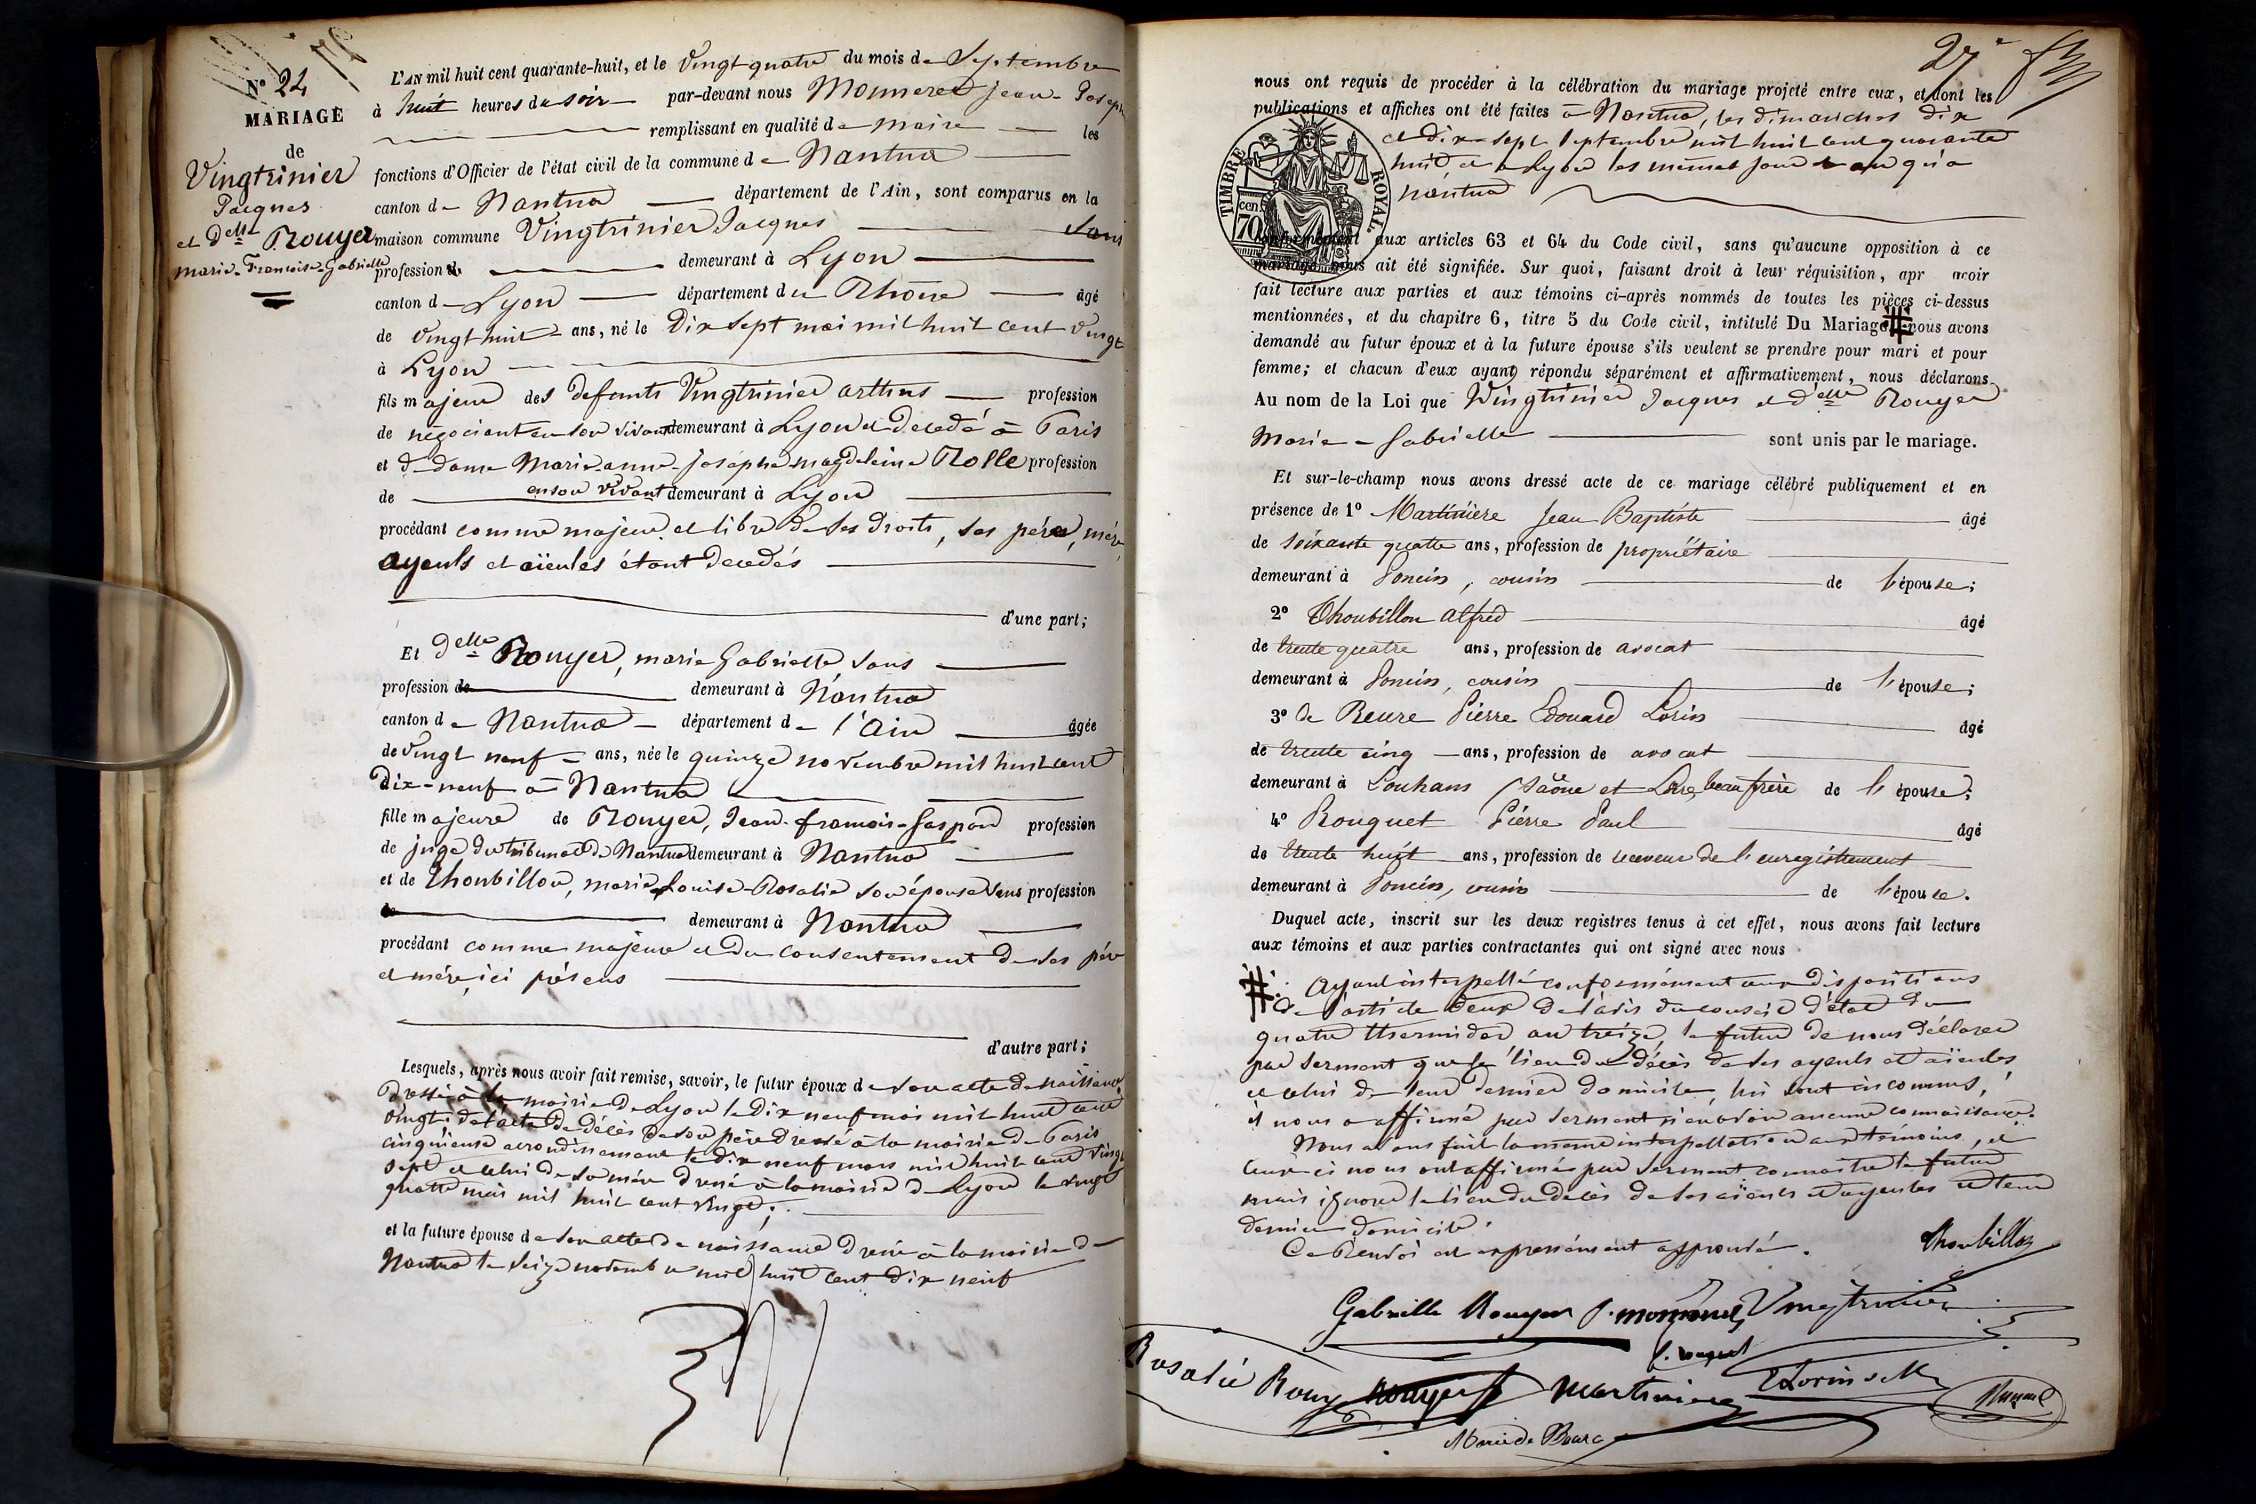 N° 24
MARIAGE
de
Vingtrinier
Jacques
et Delle Rouyer
marie-Françoise-Gabrielle
L'AN mil huit cent quarante-huit, et le Vingt quatre du mois de Septembre
à huit heures du soir par-devant nous Monneret Jean-Joseph
remplissant en qualité de maire les
fonctions d'Officier de l'état civil de la commune de Nantua
canton de Nantua département de l'Ain, sont comparus en la
maison commune Vingtrinier Jacques sans
profession de demeurant à Lyon
canton de Lyon département du Rhône âgé
de vingt huit ans, né le Dix sept mai mil huit cent vingt
à Lyon
fils majeur des defunts Vingtrinier arthus profession
de négociant en son vivant demeurant à Lyon et décédé à Paris
et de dame Marie-anne-Josephe-magdeleine Rolle profession
de en son vivant demeurant à Lyon
procédant comme majeur et libre de ses droits, ses père, mère,
ayeuls et aïeules étant décédés
d'une part;
Et delle Rouyer, marie Gabrielle, sans
profession de demeurant à Nantua
canton de Nantua département de l'Ain âgée
de vingt neuf ans, née le quinze novembre mil huit cent
dix-neuf à Nantua
fille majeure de Rouyer, Jean-françois-Gaspard profession
de juge du tribunal de Nantua demeurant à Nantua
et de Thoubillou, marie Louise-Rosalie son épouse sans profession
de demeurant à Nantua
procédant comme majeure et du consentement de ses père
et mère, ici présens
d'autre part;
Lesquels, après nous avoir fait remise, savoir, le futur époux de son acte de naissance
dressé à la mairie de Lyon le dix neuf mai mil huit cent
vingt, de l'acte de décès de son père dressé à la mairie de Paris
cinquième arrondissement le dix neuf mars mil huit cent vingt
sept et celui de sa mère dressé à la mairie de Lyon le vingt
quatre mai mil huit cent vingt;
et la future épouse de son acte de naissance dressé à la mairie de
Nantua le seize novembre mil huit cent dix neuf
27e
nous ont requis de procéder à la célébration du mariage projeté entre eux, et dont les
publications et affiches ont été faites à Nantua, les dimanches dix
et dix-sept septembre mil huit cent quarante
huit, et à Lyon les mêmes jour et an qu'à
Nantua
TIMBRE ROYAL
70 cen
conformément aux articles 63 et 64 du Code civil, sans qu'aucune opposition à ce
mariage nous ait été signifiée. Sur quoi, faisant droit à leur réquisition, apr avoir
fait lecture aux parties et aux témoins ci-après nommés de toutes les pièces ci-dessus
mentionnées, et du chapitre 6, titre 5 du Code civil, intitulé Du Mariage, # nous avons
demandé au futur époux et à la future épouse s'ils veulent se prendre pour mari et pour
femme; et chacun d'eux ayant répondu séparément et affirmativement, nous déclarons
Au nom de la Loi que Vingtrinier Jacques et delle Rouyer
Marie-Gabrielle sont unis par le mariage.
Et sur-le-champ nous avons dressé acte de ce mariage célébré publiquement et en
présence de 1° Martinière Jean Baptiste âgé
de soixante quatre ans, profession de propriétaire
demeurant à Poncin, cousin de l'épouse;
2° Thoubillou Alfred âgé
de trente quatre ans, profession de avocat
demeurant à Poncin, cousin de l'épouse;
3° De Beure Pierre Edouard Lorin âgé
de trente cinq ans, profession de avocat
demeurant à Louhans (Saône et Loire) beau frère de l'épouse;
4° Rouquet Pierre Paul âgé
de trente huit ans, profession de receveur de l'enregistrement
demeurant à Poncin, cousin de l'épouse.
Duquel acte, inscrit sur les deux registres tenus à cet effet, nous avons fait lecture
aux témoins et aux parties contractantes qui ont signé avec nous
#: Ayant interpellé conformément aux dispositions
de l'article deux de l'avis du conseil d'état du
quatre thermidor an treize, le futur de nous déclarer
par serment que le lieu du décès de ses ayeuls et aïeules
et celui de leur dernier domicile, lui sont inconnus,
il nous a affirmé par serment n'en avoir aucune connaissance.
Nous avons fait la même interpellation aux témoins, et
ceux-ci nous ont affirmé par serment connaître le futur
mais ignorer le lieu du décès de ses aïeuls et ayeules et leur
dernier domicile.
Ce Renvoi est expressément approuvé.
Thoubillou
Gabrielle Rouyer J. monneret Vingtrinier
P. rouquet
Rosalie Rouyer rouyer martiniere